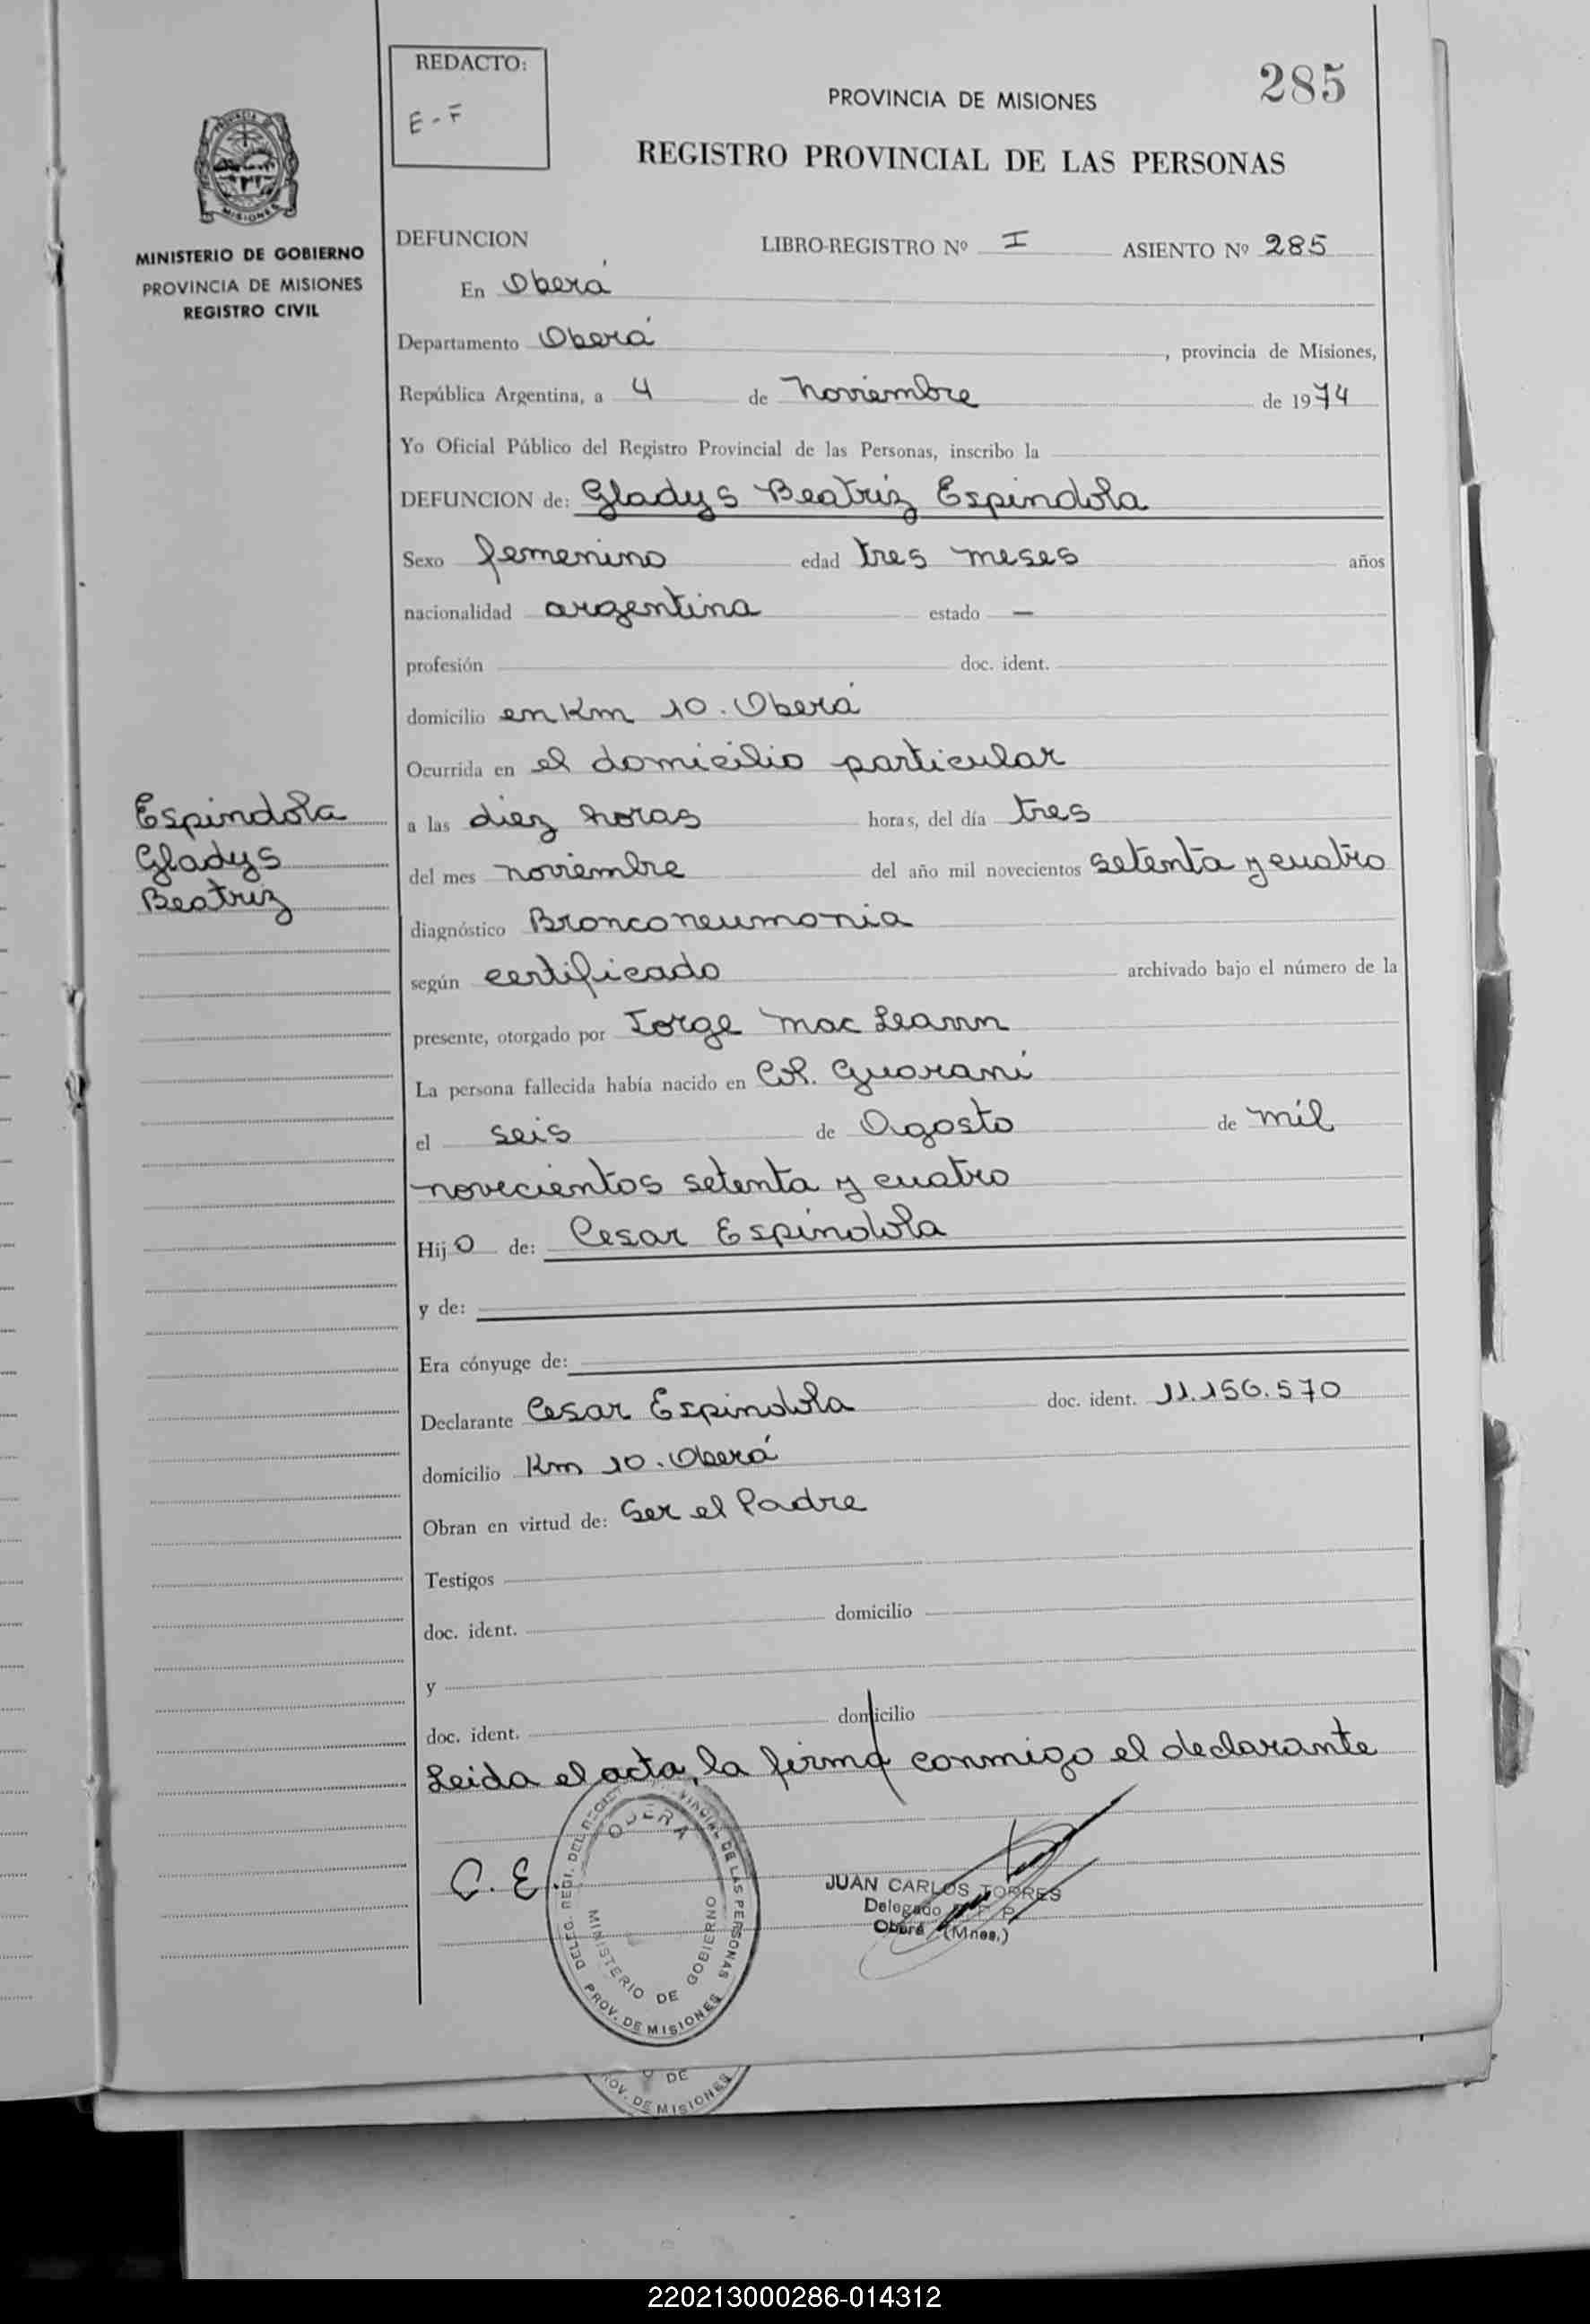 REDACTO:
E-F
285
PROVINCIA DE MISIONES
REGISTRO PROVINCIAL DE LAS PERSONAS
MISIONES
MINISTERIO DE GOBIERNO
PROVINCIA DE MISIONES
REGISTRO CIVIL
DEFUNCION LIBRO-REGISTRO Nº I ASIENTO Nº 285
En Oberá
Departamento Oberá, provincia de Misiones,
República Argentina, a 4 de noviembre de 1974
Yo Oficial Público del Registro Provincial de las Personas, inscribo la
DEFUNCION de: Gladys Beatriz Espindola
Sexo femenino edad tres meses años
nacionalidad argentina estado —
profesión doc. ident.
domicilio en Km 10. Oberá
Ocurrida en el domicilio particular
Espindola
Gladys
Beatriz
a las diez horas horas, del día tres
del mes noviembre del año mil novecientos setenta y cuatro
diagnóstico Bronconeumonia
según certificado archivado bajo el número de la
presente, otorgado por Jorge Mac Leamn
La persona fallecida había nacido en Col. Guaraní
el seis de Agosto de mil
novecientos setenta y cuatro
Hijo de: Cesar Espindola
y de:
Era cónyuge de:
Declarante Cesar Espindola doc. ident. 11.156.570
domicilio Km 10. Oberá
Obran en virtud de: Ser el Padre
Testigos
doc. ident. domicilio
y
doc. ident. domicilio
Leida el acta, la firma conmigo el declarante
C. E.
OBERA
MINISTERIO DE GOBIERNO
DE LAS PERSONAS
PROV. DE MISIONES
JUAN CARLOS TORRES
Delegado
Oberá (Mnes.)
DE
PROV. DE MISIONES
220213000286-014312